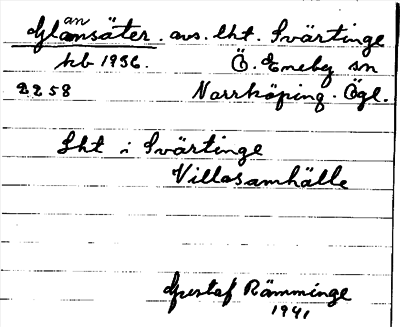 an
Glamsäter. avs. lht. Svärtinge
kb 1936. Ö. Eneby sn
2258 Norrköping. Ögl.
Lht i Svärtinge
Villasamhälle
Gustaf Rämminge
1941